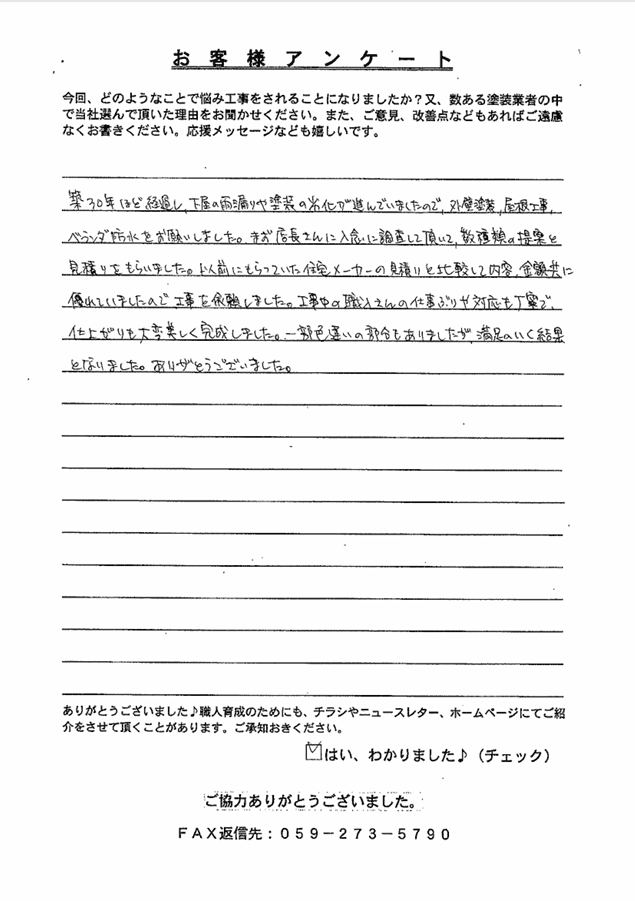 お客様アンケート
今回、どのようなことで悩み工事をされることになりましたか？又、数ある塗装業者の中
で当社選んで頂いた理由をお聞かせください。また、ご意見、改善点などもあればご遠慮
なくお書きください。応援メッセージなども嬉しいです。
築30年ほど経過し、下屋の雨漏りや塗装の劣化が進んでいましたので、外壁塗装、屋根工事、
ベランダ防水をお願いしました。まず店長さんに入念に調査して頂いて、数種類の提案と
見積りをもらいました。以前にもらっていた住宅メーカーの見積りと比較して内容、金額共に
優れていましたので工事を依頼しました。工事中の職人さんの仕事ぶりや対応も丁寧で、
仕上がりも大変美しく完成しました。一部色違いの部分もありましたが、満足のいく結果
となりました。ありがとうございました。
ありがとうございました♪職人育成のためにも、チラシやニュースレター、ホームページにてご紹
介をさせて頂くことがあります。ご承知おきください。
はい、わかりました♪（チェック）
ご協力ありがとうございました。
FAX返信先：059－273－5790